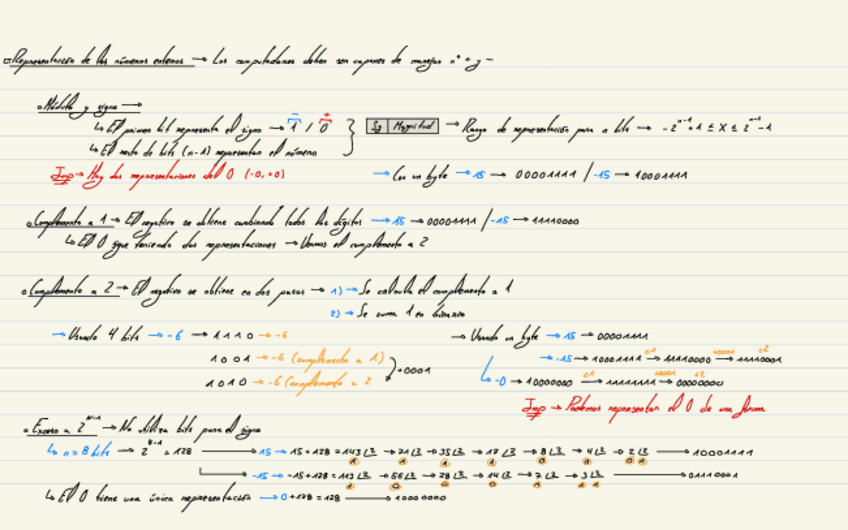 Representación de los números enteros → Los computadores deben ser capaces de manejar nº + y -
Módulo y signo →
↳ El primer bit representa el signo → 1 / 0
- +
Sg | Magnitud → Rango de representación para n bits → -2^(n-1)+1 ≤ X ≤ 2^(n-1)-1
↳ El resto de bits (n-1) representan el número
Imp → Hay dos representaciones del 0 (-0, +0)
→ Con un byte → 15 → 00001111 / -15 → 10001111
Complemento a 1 → El negativo se obtiene cambiando todos los dígitos → 15 → 00001111 / -15 → 11110000
↳ El 0 sigue teniendo dos representaciones → Usamos el complemento a 2
Complemento a 2 → El negativo se obtiene en dos pasos → 1) → Se calcula el complemento a 1
2) → Se suma 1 en binario
→ Usando 4 bits → -6 → 1110 → -6
1001 → -6 (complemento a 1)
+0001
1010 → -6 (complemento a 2
→ Usando un byte → 15 → 00001111
→ -15 → 10001111 → c1 → 11110000 → +0001 → c2 → 11110001
↳ -0 → 10000000 → c1 → 11111111 → +0001 → c2 → 00000000
Imp → Podemos representar el 0 de una forma
Exceso a 2^(n-1) → No utiliza bits para el signo
↳ n = 8 bits → 2^(8-1) = 128 → 15 → 15+128 = 143 |2 → 71 |2 → 35 |2 → 17 |2 → 8 |2 → 4 |2 → 2 |2 → 10001111
→ -15 → -15+128 = 113 |2 → 56 |2 → 28 |2 → 14 |2 → 7 |2 → 3 |2 → 01110001
↳ El 0 tiene una única representación → 0+128 = 128 → 10000000